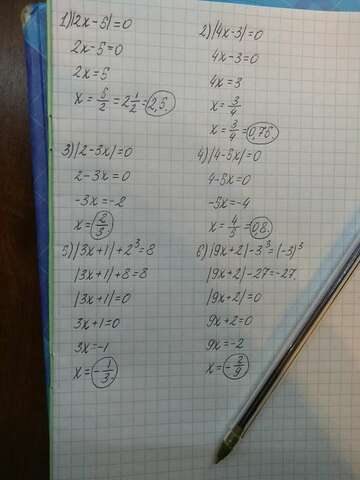 1) |2x-5|=0
2x-5=0
2x=5
x = 5/2 = 2 1/2 = 2,5.
2) |4x-3|=0
4x-3=0
4x=3
x = 3/4
x = 3/4 = 0,75
3) |2-3x|=0
2-3x=0
-3x=-2
x = 2/3.
4) |4-5x|=0
4-5x=0
-5x=-4
x = 4/5 = 0,8.
5) |3x+1|+2³=8
|3x+1|+8=8
|3x+1|=0
3x+1=0
3x=-1
x = -1/3
6) |9x+2|-3³=(-3)³
|9x+2|-27=-27
|9x+2|=0
9x+2=0
9x=-2
x = -2/9